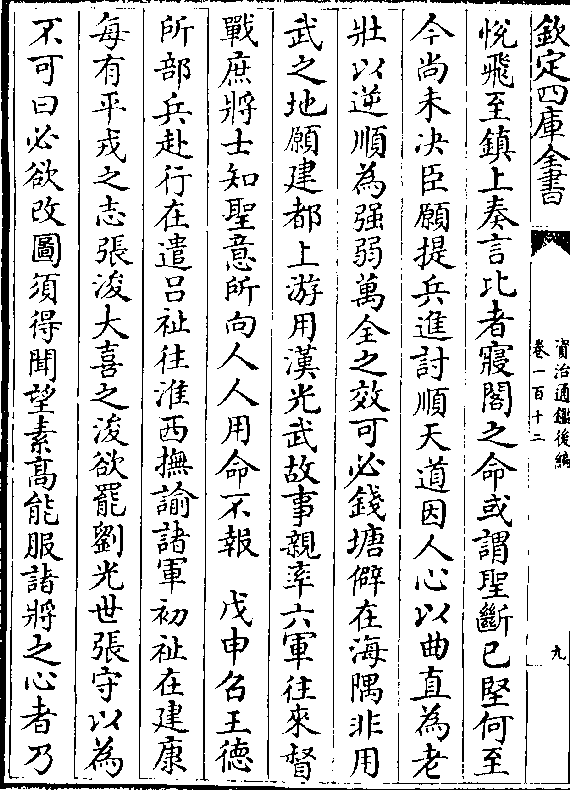 欽定四庫全書
資治通鑑後編
卷一百十二
九
悅飛至鎮上奏言比者寢閣之命或謂聖斷已堅何至
今尚未決臣願提兵進討順天道因人心以曲直為老
壯以逆順為强弱萬全之效可必錢塘僻在海隅非用
武之地願建都上游用漢光武故事親率六軍往來督
戰庶將士知聖意所向人人用命不報　戊申召王德
所部兵赴行在遣吕祉往淮西撫諭諸軍初祉在建康
每有平戎之志張浚大喜之浚欲罷劉光世張守以為
不可曰必欲改圖須得聞望素高能服諸將之心者乃